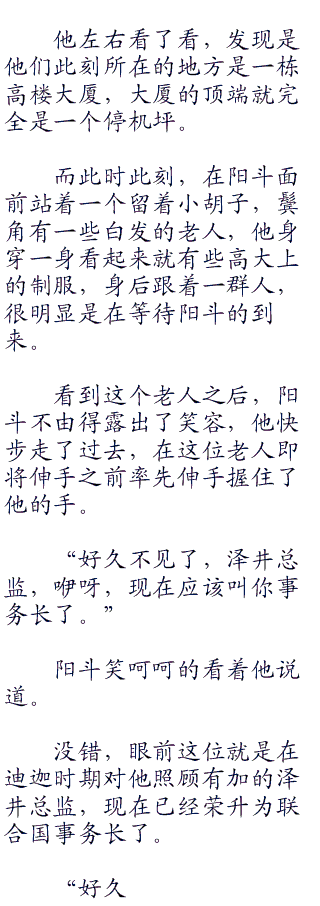 他左右看了看，发现是
他们此刻所在的地方是一栋
高楼大厦，大厦的顶端就完
全是一个停机坪。
而此时此刻，在阳斗面
前站着一个留着小胡子，鬓
角有一些白发的老人，他身
穿一身看起来就有些高大上
的制服，身后跟着一群人，
很明显是在等待阳斗的到
来。
看到这个老人之后，阳
斗不由得露出了笑容，他快
步走了过去，在这位老人即
将伸手之前率先伸手握住了
他的手。
“好久不见了，泽井总
监，咿呀，现在应该叫你事
务长了。”
阳斗笑呵呵的看着他说
道。
没错，眼前这位就是在
迪迦时期对他照顾有加的泽
井总监，现在已经荣升为联
合国事务长了。
“好久